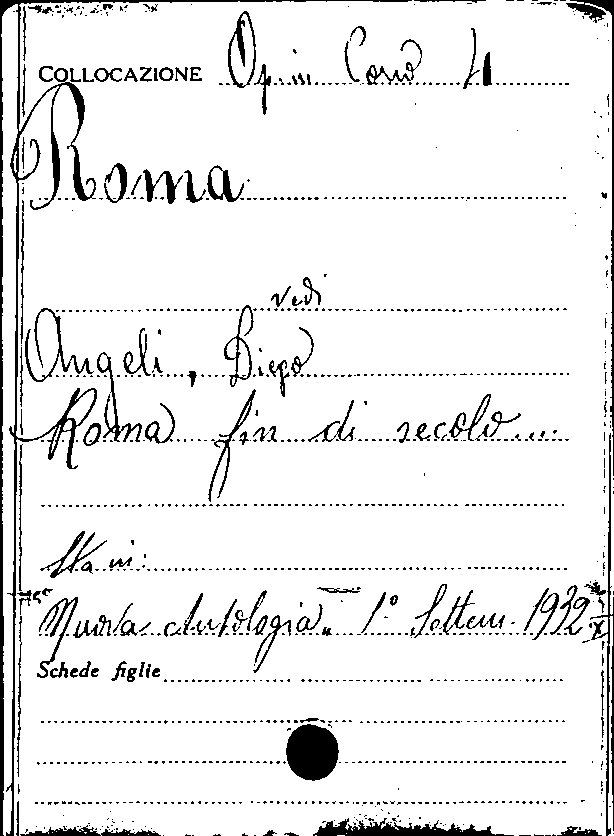 COLLOCAZIONE Op. in Corso 4
Roma
vedi
Angeli, Diego
Roma fin di secolo....
Sta in:
"Nuova Antologia" 1º Settem. 1932
Schede figlie